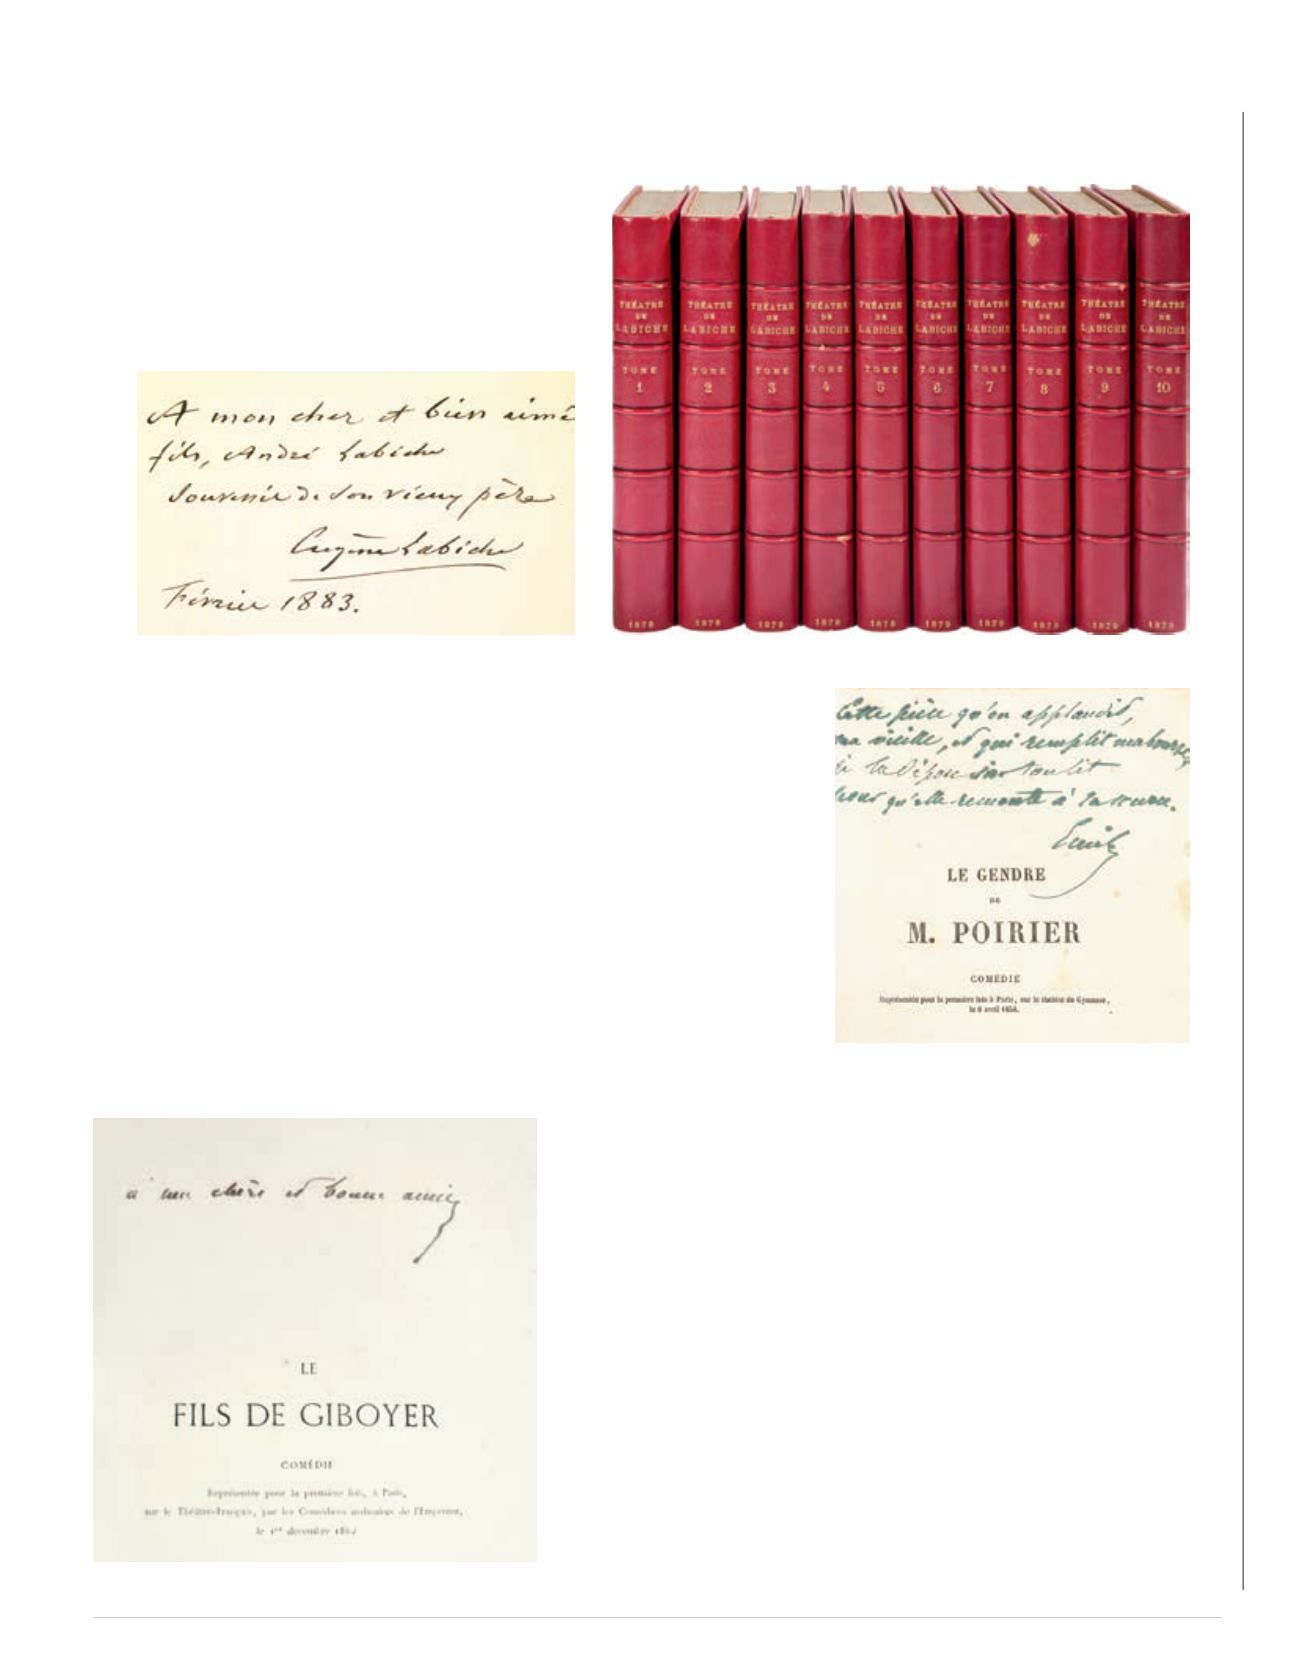 A mon cher et bien aimé
fils, André Labiche
Souvenir de son vieux père
Eugène Labiche
Février 1883.
THÉATRE DE LABICHE TOME 1 1878
THÉATRE DE LABICHE TOME 2 1878
THÉATRE DE LABICHE TOME 3 1878
THÉATRE DE LABICHE TOME 4 1878
THÉATRE DE LABICHE TOME 5 1879
THÉATRE DE LABICHE TOME 6 1879
THÉATRE DE LABICHE TOME 7 1879
THÉATRE DE LABICHE TOME 8 1879
THÉATRE DE LABICHE TOME 9 1879
THÉATRE DE LABICHE TOME 10 1879
Cette pièce qu'on applaudit,
ma vieille, et qui remplit ma bourse,
je la dépose sur ton lit
pour qu'elle remonte à sa source.
Emile
LE GENDRE
DE
M. POIRIER
COMÉDIE
Représentée pour la première fois à Paris, sur le théâtre du Gymnase,
le 8 avril 1854.
a ma chère et bonne amie
LE
FILS DE GIBOYER
COMÉDIE
Représentée pour la première fois, à Paris,
sur le Théâtre-Français, par les Comédiens ordinaires de l'Empereur,
le 1er décembre 1862